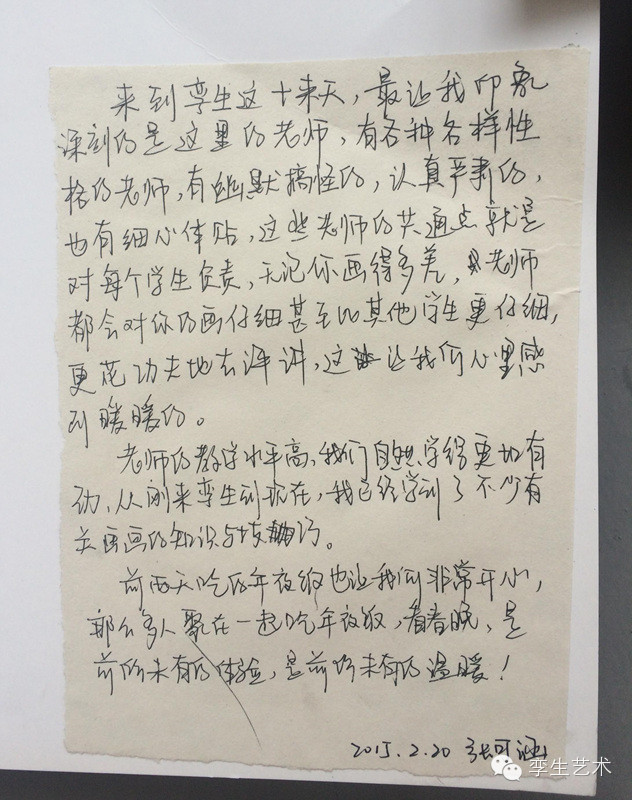 来到孪生这十来天，最让我印象
深刻的是这里的老师，有各种各样性
格的老师，有幽默搞怪的，认真严肃的，
也有细心体贴，这些老师的共通点就是
对每个学生负责，无论你画得多差，老师
都会对你的画仔细甚至比其他学生更仔细，
更花功夫地去评讲，这让我们心里感
到暖暖的。
老师的教学水平高，我们自然学得更加有
劲，从刚来孪生到现在，我已经学到了不少有
关画画的知识与技巧。
前两天吃的年夜饭也让我们非常开心，
那么多人聚在一起吃年夜饭，看春晚，是
前所未有的体验，是前所未有的温暖！
2015.2.20 张可涵
孪生艺术